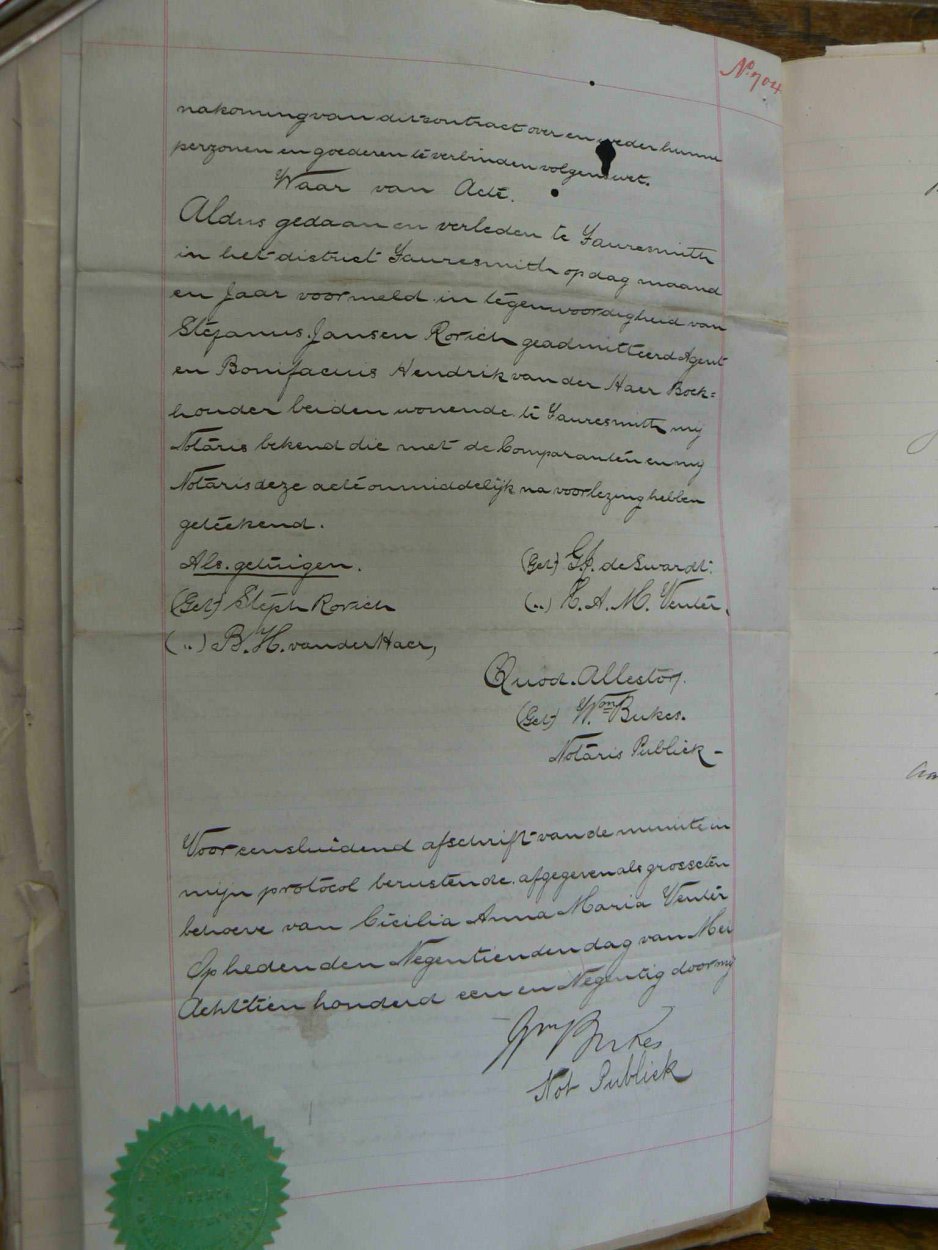 No 704
nakoming van dit contract over en weder hunne
perzonen en goederen te verbinden volgens wet.
Waar van Acte.
Aldus gedaan en verleden te Fauresmith
in het district Fauresmith op dag maand
en Jaar voormeld in tegenwoordigheid van
Stefanus Jansen Rorich geadmitteerd Agent
en Bonifacius Hendrik van der Haer Boek=
houder beiden wonende te Fauresmith my
Notaris bekend die met de Comparanten en my
Notaris deze acte onmiddelijk na voorlezing hebben
geteekend.
Als getuigen.
(Get) G.J. de Swardt.
(Get) Steph Rorich
(..) C. A. M. Venter.
(..) B. H. van der Haer,
Quod Attestor.
(Get) Wm Bukes.
Notaris Publiek -
Voor eensluidend afschrift van de minute in
mijn protocol berustende afgegeven als grosse ten
behoeve van Cicilia Anna Maria Venter
Op heden den Negentienden dag van Mei
Achttien honderd een en Negentig door my
Wm Bukes
Not Publiek